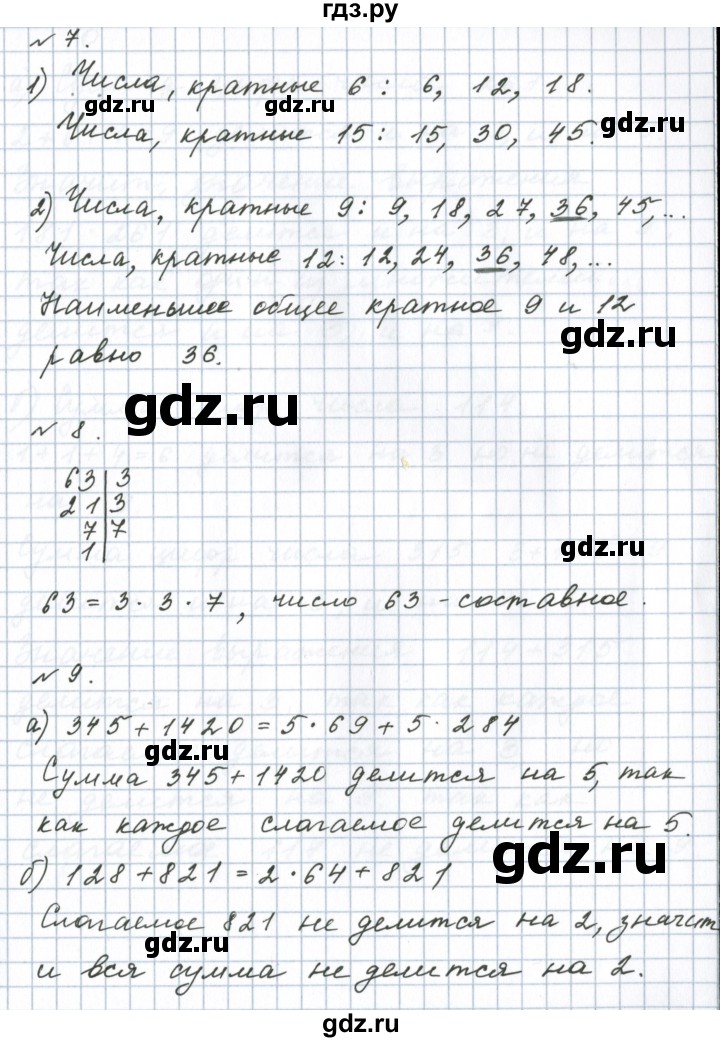 гдз.ру
№ 7.
1) Числа, кратные 6 : 6, 12, 18.
gdz.ru gdz.ru
gdz.ru
Числа, кратные 15 : 15, 30, 45.
2) Числа, кратные 9 : 9, 18, 27, 36, 45, ...
Числа, кратные 12 : 12, 24, 36, 48, ...
Наименьшее общее кратное 9 и 12
gdz.ru
равно 36.
gdz.ru
№ 8.
63 | 3
21 | 3
7 | 7
1 |
gdz.ru
63 = 3 · 3 · 7, число 63 - составное.
№ 9.
а) 345 + 1420 = 5 · 69 + 5 · 284
gdz.ru
Сумма 345 + 1420 делится на 5, так
как каждое слагаемое делится на 5.
gdz.ru
б) 128 + 821 = 2 · 64 + 821
Слагаемое 821 не делится на 2, значит
gdz.ru
и вся сумма не делится на 2.
gdz.ru